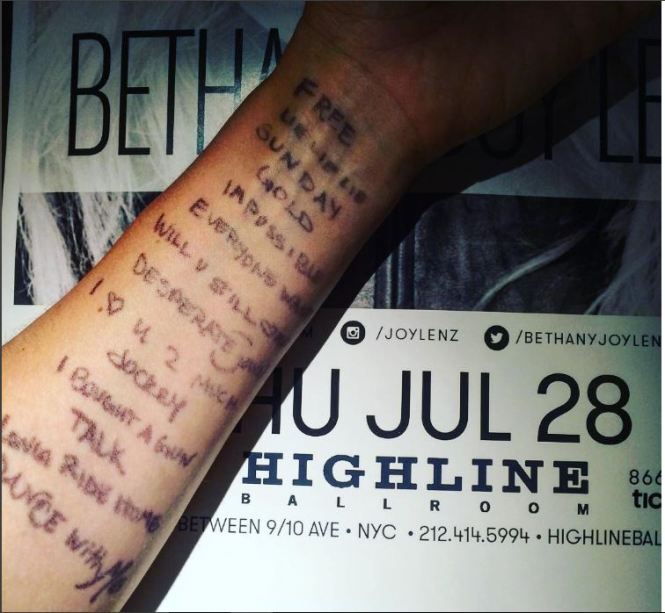 BETHANY JOY LE
FREE
LIE LIE LIE
SUNDAY
GOLD
IMPOSSIBLE
EVERYONE WA
WILL U STILL
DESPERATE
I ♡ U 2 MUCH
JOCKEY
I BOUGHT A GUN
TALK
LONG RIDE HOME
DANCE with Me
M
/JOYLENZ
/BETHANYJOYLEN
HU JUL 28
HIGHLINE
BALLROOM
866
tic
BETWEEN 9/10 AVE • NYC • 212.414.5994 • HIGHLINEBAL